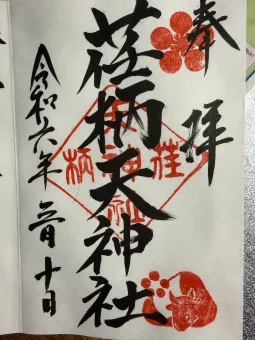 奉拝
荏柄天神社
荏柄天神社
令和六年三月十日